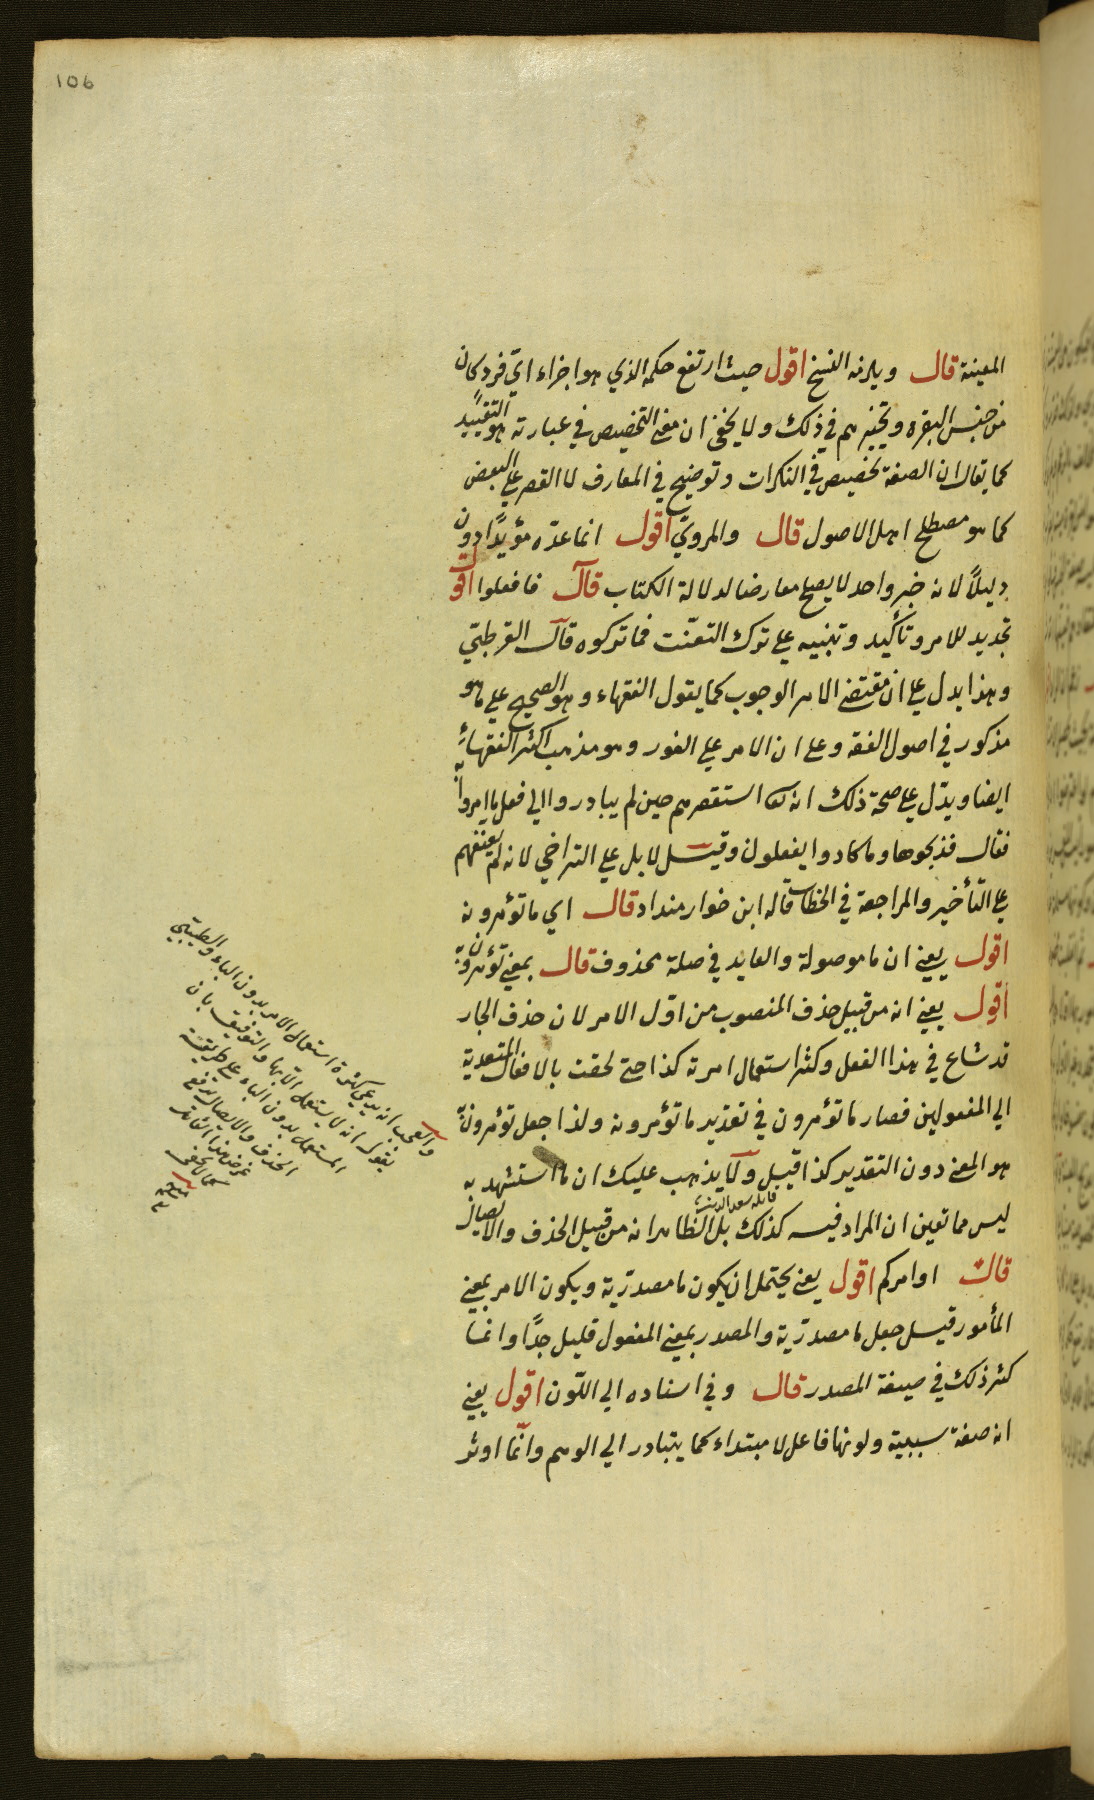 106
المعينة قال ويلزمه النسخ اقول حيث ارتفع حكمه الذي هو اجزاء ايّ فرد كان
من جنس البقره وتخييرهم في ذلك ولا يخفى ان معنى التخصيص في عبارته هو التقييد
كما يقال ان الصفة تخصيص في النكرات وتوضيح في المعارف لا القصر على البعض
كما هو مصطلح اهل الاصول قال والمرويّ اقول انما عدّه مؤيدًا دون
دليلاً لانه خبر واحد لا يصلح معارضا لدلالة الكتاب قال فافعلوا اقول
تجديد للامر وتأكيد وتنبيه على ترك التعنّت فما تركوه قال القرطبيّ
وهذا يدل على ان مقتضى الامر الوجوب كما يقول الفقهاء وهو الصحيح على ما هو
مذكور في اصول الفقه وعلى ان الامر على الفور وهو مذهب اكثر الفقهاء
ايضا ويدّل على صحة ذلك انه استقصرهم حين لم يبادروا الي فعل ما امروا به
فقال فذبحوها وما كادوا يفعلون وقيل لا بل على التراخي لانه لم يعنفهم
على التأخير والمراجعة في الخطاب قاله ابن خوازمنداد قال اي ما تؤمرونه
اقول يعني ان ما موصولة والعايد في صلة محذوف قال بمعنى تؤمرون به
اقول يعني انه من قبيل حذف المنصوب من اوّل الامر لان حذف الجار
قد شاع في هذا الفعل وكثر استعمال امرته كذا حتى لحقت بالافعال المتعدية
الي المفعولين فصار ما تؤمرون في تقدير ما تؤمرونه ولذا جعل تؤمرون به
هو المعنى دون التقدير كذا قيل ولا يذهب عليك ان ما استشهد به
قائله سعد الدين
ليس مما تعين ان المراد فيه كذلك بل الظاهر انه من قبيل الحذف والايصال
قال اوامركم اقول يعنى يحتمل ان يكون ما مصدريّة ويكون الامر بمعنى
المأمور قيل جعل ما مصدريّة والمصدر بمعنى المفعول قليل جدًّا وانما
كثر ذلك في صيغة المصدر قال وفي اسناده الي اللّون اقول يعني
انه صفة سببية ولونها فاعل لا مبتداء كما يتبادر الي الوهم وانّما اوثر
والعجب انه يدعي كثرة استعمال الامر بدون الباء والطيبي
يقول انه لا يستعمل الا بها والتوفيق بان
المستعمل بدون الباء على طريقة
الحذف والايصال
كما لا يخفى
منه